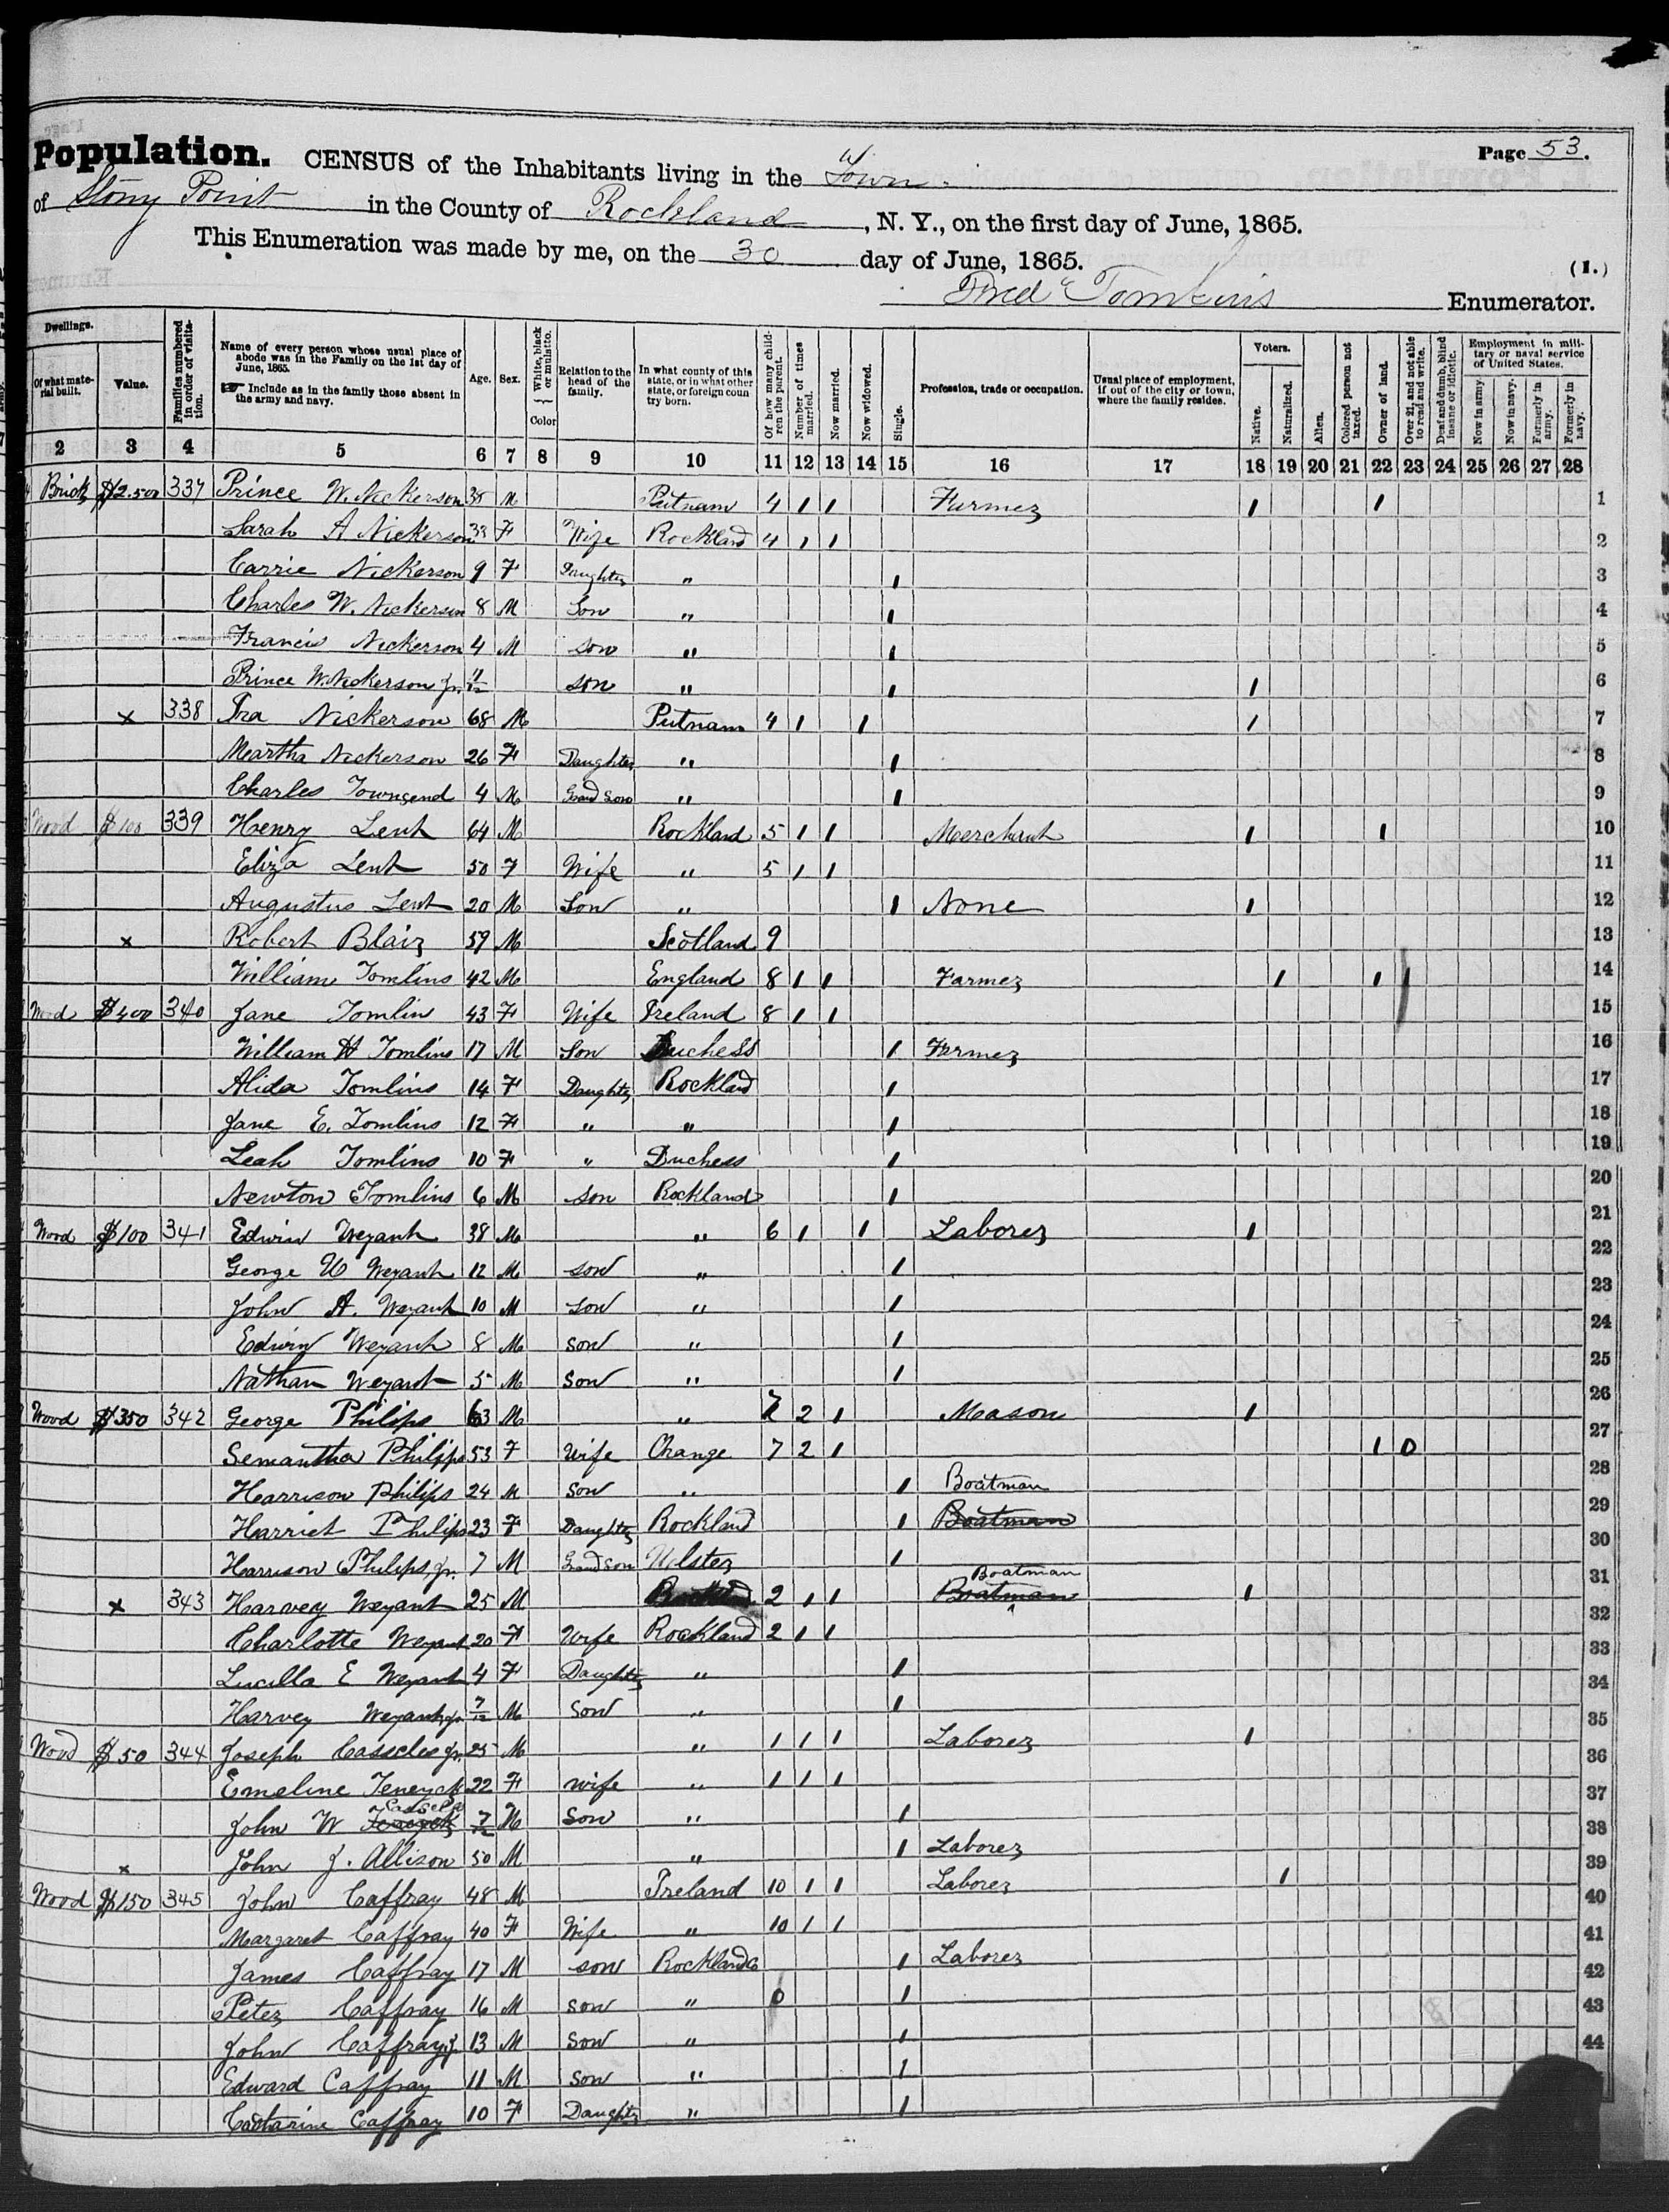 Population. CENSUS of the Inhabitants living in the Town Page 53.
of Stony Point in the County of Rockland, N. Y., on the first day of June, 1865.
This Enumeration was made by me, on the 30 day of June, 1865. (1.)
Fred Tomkins Enumerator.
Dwellings. Of what material built. Value. Families numbered in order of visitation. Name of every person whose usual place of abode was in the Family on the 1st day of June, 1865. Include as in the family those absent in the army and navy. Age. Sex. White, black or mulatto. Color Relation to the head of the family. In what county of this state, or in what other state, or foreign country born. Of how many children the parent. Number of times married. Now married. Now widowed. Single. Profession, trade or occupation. Usual place of employment, if out of the city or town, where the family resides. Voters. Native. Naturalized. Alien. Colored person not taxed. Owner of land. Over 21, and not able to read and write. Deaf and dumb, blind insane or idiotic. Employment in military or naval service of United States. Now in army. Now in navy. Formerly in army. Formerly in navy.
2 3 4 5 6 7 8 9 10 11 12 13 14 15 16 17 18 19 20 21 22 23 24 25 26 27 28
Brick $2.500 337 Prince W. Nickerson 38 M Putnam 4 1 1 Farmer 1 1 1
Sarah A Nickerson 33 F Wife Rockland 4 1 1 2
Carrie Nickerson 9 F Daughter " 1 3
Charles W. Nickerson 8 M Son " 1 4
Francis Nickerson 4 M son " 1 5
Prince W. Nickerson Jr. 11/12 son " 1 1 6
x 338 Ira Nickerson 68 M Putnam 4 1 1 1 7
Meartha Nickerson 26 F Daughter " 1 8
Charles Townsend 4 M Grand Son " 1 9
Wood $100 339 Henry Lent 64 M Rockland 5 1 1 Merchant 1 1 10
Eliza Lent 50 F Wife " 5 1 1 11
Augustus Lent 20 M Son " 1 None 1 12
x Robert Blair 59 M Scotland 9 13
William Tomlins 42 M England 8 1 1 Farmer 1 1 1 14
Wood $400 340 Jane Tomlin 43 F Wife Ireland 8 1 1 15
William H Tomlins 17 M Son Duchess 1 Farmer 16
Alida Tomlins 14 F Daughter Rockland 1 17
Jane E. Tomlins 12 F " " 1 18
Leah Tomlins 10 F " Duchess 1 19
Newton Tomlins 6 M son Rockland 1 20
Wood $100 341 Edwin Weyant 38 M " 6 1 1 Laborer 1 21
George W Weyant 12 M son " 1 22
John A. Weyant 10 M son " 1 23
Edwin Weyant 8 M son " 1 24
Nathan Weyant 5 M Son " 1 25
Wood $350 342 George Philips 63 M " 7 2 1 Mason 1 26
Semantha Philips 53 F Wife Orange 7 2 1 1 0 27
Harrison Philips 24 M Son " 1 Boatman 28
Harriet Philips 23 F Daughter Rockland 1 Boatman 29
Harrison Philips, Jr. 7 M Grand Son Ulster 1 30
x 343 Harvey Weyant 25 M Rockland 2 1 1 Boatman Boatman 1 31
Charlotte Weyant 20 F Wife Rockland 2 1 1 32
Lucilla E Weyant 4 F Daughter " 1 33
Harvey Weyant Jr. 7/12 M Son " 1 34
Wood $50 344 Joseph Casscles Jr. 25 M " 1 1 1 Laborer 1 35
Emeline Teneyck 22 F wife " 1 1 1 36
John W Teneyck 7/12 M Son " 1 37
x John J. Allison 50 M " 1 Laborer 38
Wood $150 345 John Caffray 48 M Ireland 10 1 1 Laborer 1 39
Margaret Caffray 40 F Wife " 10 1 1 40
James Caffray 17 M son Rockland Co 1 Laborer 41
Peter Caffray 16 M son " 0 1 42
John Caffray Jr. 13 M Son " 1 43
Edward Caffray 11 M Son " 1 44
Catharine Caffray 10 F Daughter " 1